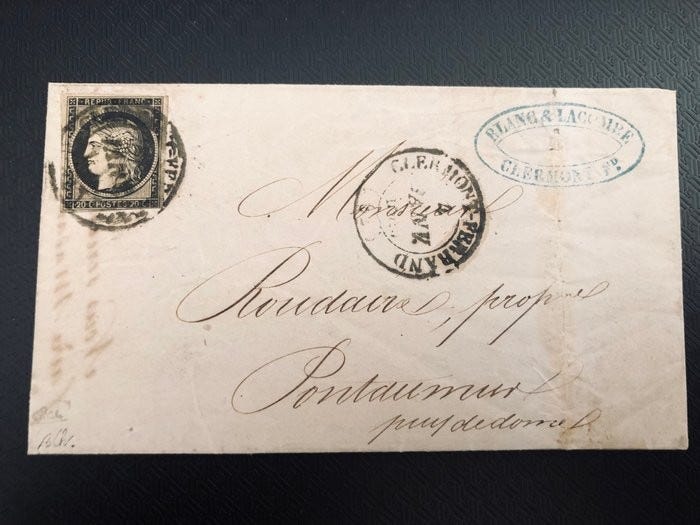 REPUB. FRANC.
20 C. POSTES 20 C.
BLANC & LACOMBE
à
CLERMONT Fd.
CLERMONT-FERRAND
4
JANV.
Monsieur
Roudaire, propre
Pontaumur
puy de dome